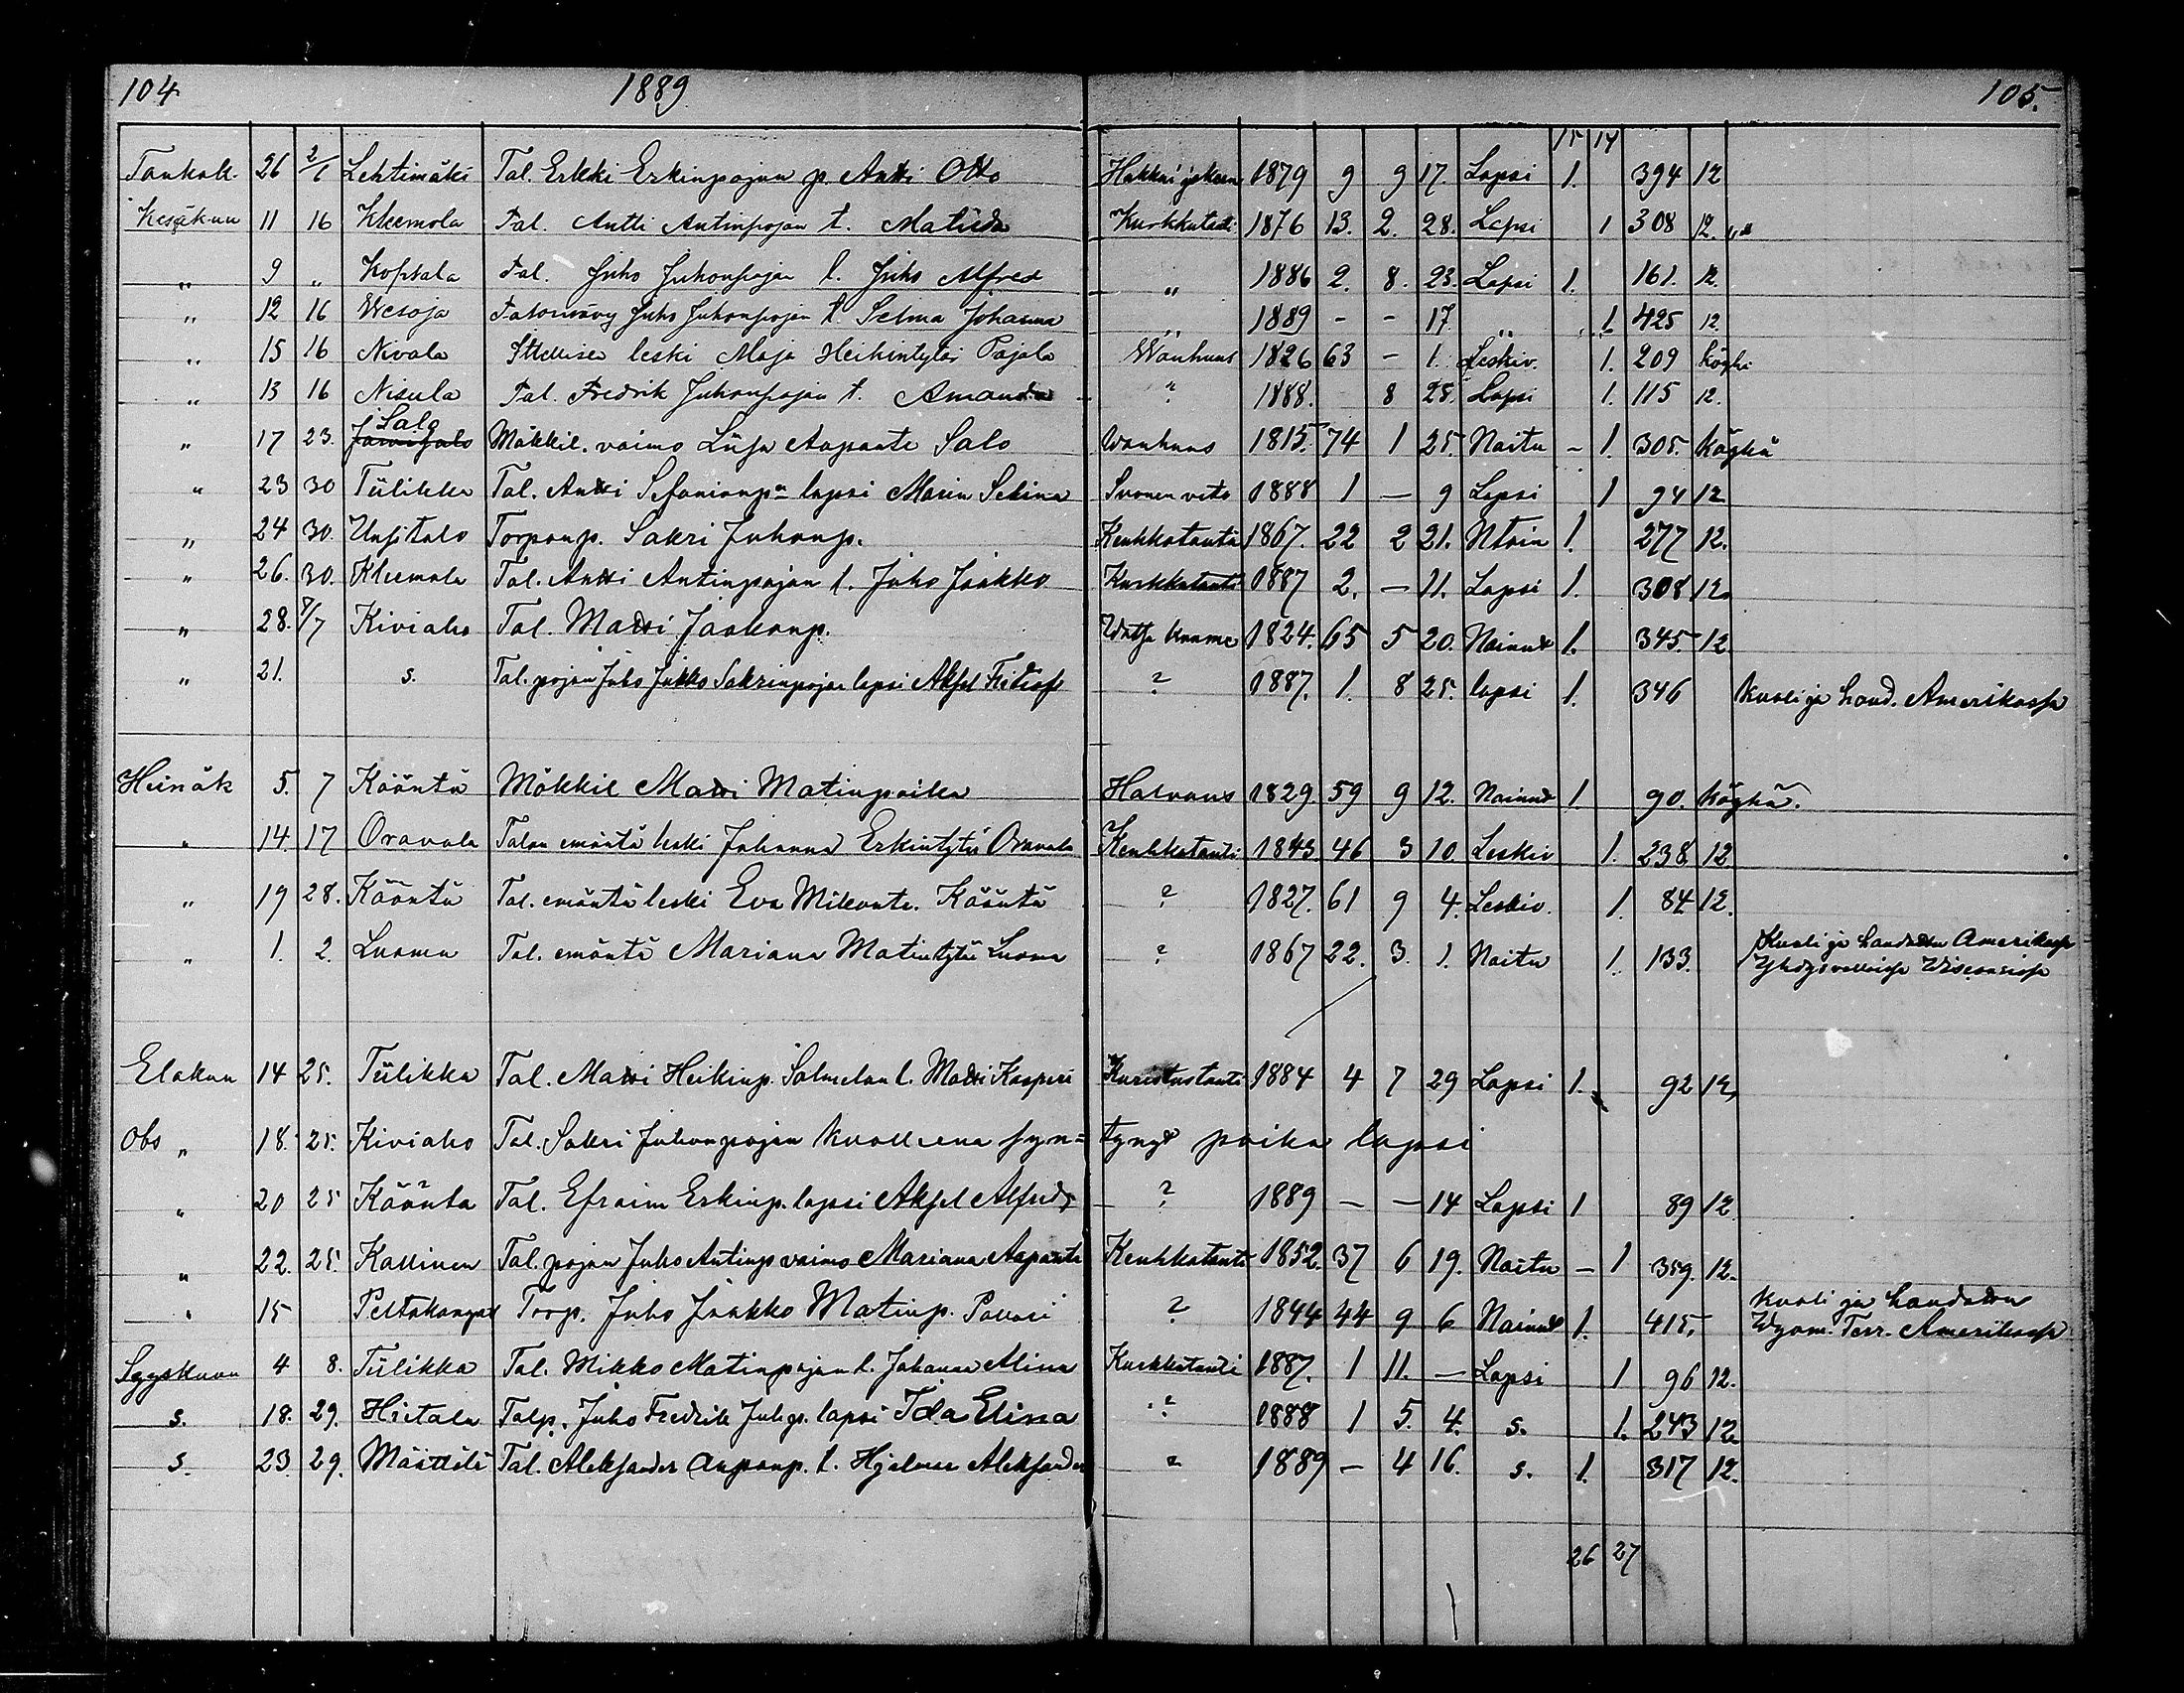 104 1889 105.
15 14
Toukok. 26 2/6 Lehtimäki Tal. Erkki Erkinpojan p. Antti Otto 1879 9 9 17. Lapsi 1. 394 12
Kesäkuu 11 16 Kleemola Tal. Antti Antinpojan t. Matilda Kurkkutauti 1876 13. 2. 28. Lapsi 1 308 12. „
„ 9 „ Tal. Juho Juhonpojan l. Juho Alfred „ 1886 2. 8. 23. Lapsi 1. 161. 12.
„ 12 16 Wesoja Juho Juhonpojan t. Selma Johanna „ 1889 - - 17. „ 1. 425 12.
„ 15 16 Nivala Itsellisen leski Maja Heikintytär Pajala Wanhuus 1826 63 - 1. Leskiv. 1. 209 köyhä
„ 13 16 Nisula Tal. Fredrik Juhonpojan t. Amanda „ 1888. 8 28. Lapsi 1. 115 12.
„ 17 23. Salo Mökkil. vaimo Liisa Aapante Salo Wanhuus 1815. 74 1 25. Naitu - 1. 305. köyhä
„ 23 30 Tiilikka Tal. Antti Sefanianpn lapsi Maria Selina 1888 1 — 9 Lapsi 1 94 12
„ 24 30. Uusitalo Torpanp. Sakri Juhonp. Keuhkotauti 1867. 22 2 21. Ntoin 1. 277 12.
„ 26. 30. Kleemola Tal. Antti Antinpojan l. Juho Jaakko Kurkkutauti 1887 2. — 11. Lapsi 1. 308 12.
„ 28. 7/7 Kiviaho Tal. Matti Jaakonp. Watsa kuume 1824. 65 5 20. Nainut 1. 345. 12
„ 21. s. Tal. pojan Juho Jakko Sakrinpojan lapsi Aksel Fritiof ? 1887. 1. 8 25. lapsi 1. 346 Kuoli ja haud. Amerikassa
Heinäk 5. 7 Kääntä Mökkil Matti Matinpoika Halvaus 1829. 59 9 12. Nainut 1 90. köyhä.
„ 14. 17 Oravala Talon emäntä leski Johanna Erkintytär Oravala Keuhkotauti 1843 46 3 10 Leskiv 1. 238 12
„ 19 28. Kääntä Tal. emäntä leski Eva Mikonte. Kääntä ? 1827. 61 9 4. Leskiv. 1. 84 12.
„ 1. 2. Luoma Tal. emäntä Mariana Matintytär Luoma ? 1867 22. 3. 1. Naitu 1. 133. Kuoli ja haudattu Amerikassa
Yhdysvalloissa Wisconsissa
Elokuu 14 25. Tiilikka Tal. Matti Heikinp. Salmelan l. Matti Kasperi Kuristustauti 1884 4 7 29 Lapsi 1. 92 12,
Obs „ 18. 25. Kiviaho Tal. Sakri Juhonpojan kuolleena syn= tynyt poika lapsi
„ 20 25 Kääntä Tal. Efraim Erkinp. lapsi Aksel Alfred ? 1889 — — 14 Lapsi 1 89 12
„ 22. 25. Kallinen Tal. pojan Juho Antinp vaimo Mariana Aapante Keuhkotauti 1852. 37 6 19. Naitu — 1 359. 12.
„ 15 Peltokangas Torp. Juho Jaakko Matinp. ? 1844 44 9 6 Nainut 1. 415. Kuoli ja haudattu
Wyom. Terr. Amerikassa
Syyskuu 4 8. Tiilikka Tal. Mikko Matinpojan l. Johanna Alina Kurkkutauti 1887. 1 11. — Lapsi 1 96 12.
s. 18. 29. Hietala Talp. Juho Fredrik Juhp. lapsi Ida Elina ? 1888 1 5. 4. s. 1. 243 12.
s. 23. 29. Määttälä Tal. Aleksander Aaponp. l. Hjalmar Aleksander ? 1889 — 4 16. s. 1. 317 12.
26 27